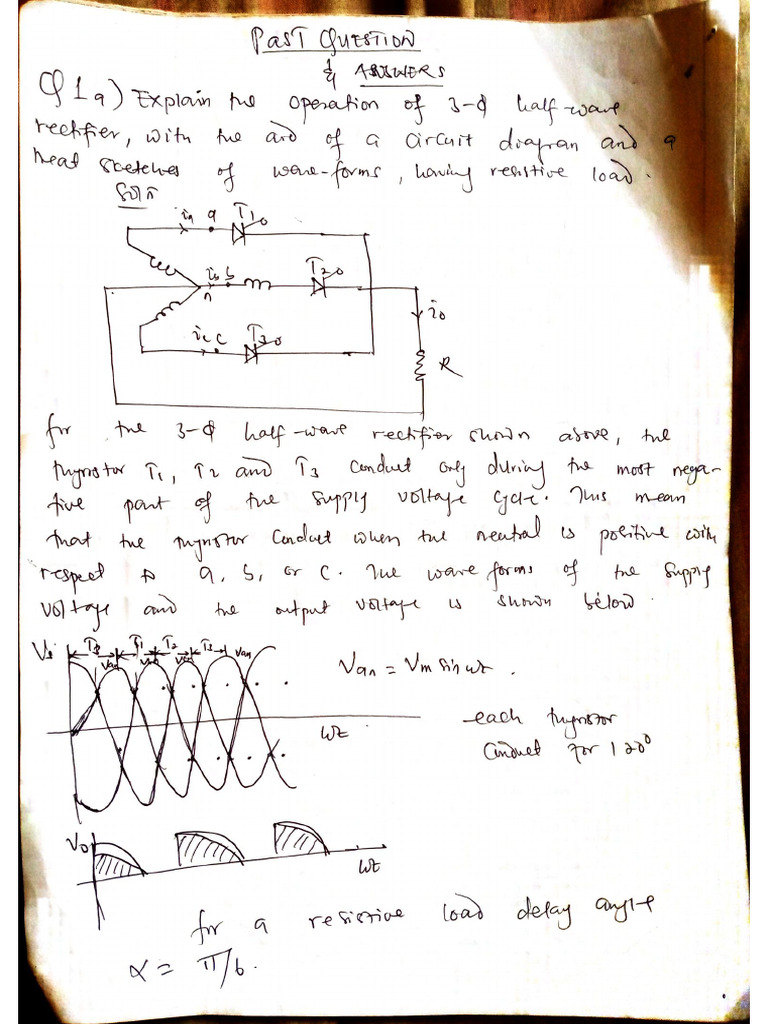 PAST QUESTION
& ANSWERS
Q1a) Explain the operation of 3-ϕ half-wave
rectifier, with the aid of a circuit diagram and a
neat sketches of wave-forms, having resistive load.
Soln
ia a T1
ib b T2
n
ic c T3
io
R
for the 3-ϕ half-wave rectifier shown above, the
thyristor T1, T2 and T3 conduct only during the most nega-
tive part of the supply voltage cycle. This mean
that the thyristor conduct when the neutral is positive with
respect to a, b, or c. The wave forms of the supply
voltage and the output voltage is shown below.
Vs T3 T1 T2 T3 Van
Van
Van = Vm sin wt.
wt
each thyristor
conduct for 120°
Vo
wt
for a resistive load delay angle
α = π/6.